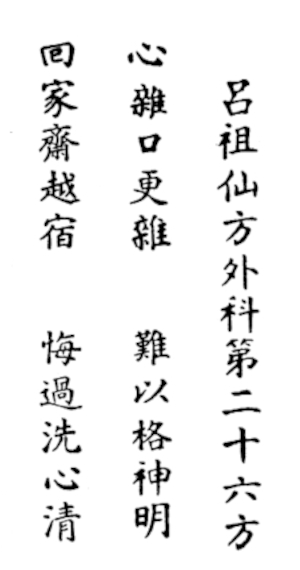 呂祖仙方外科第二十六方
心雜口更雜　難以格神明
回家齋越宿　悔過洗心清